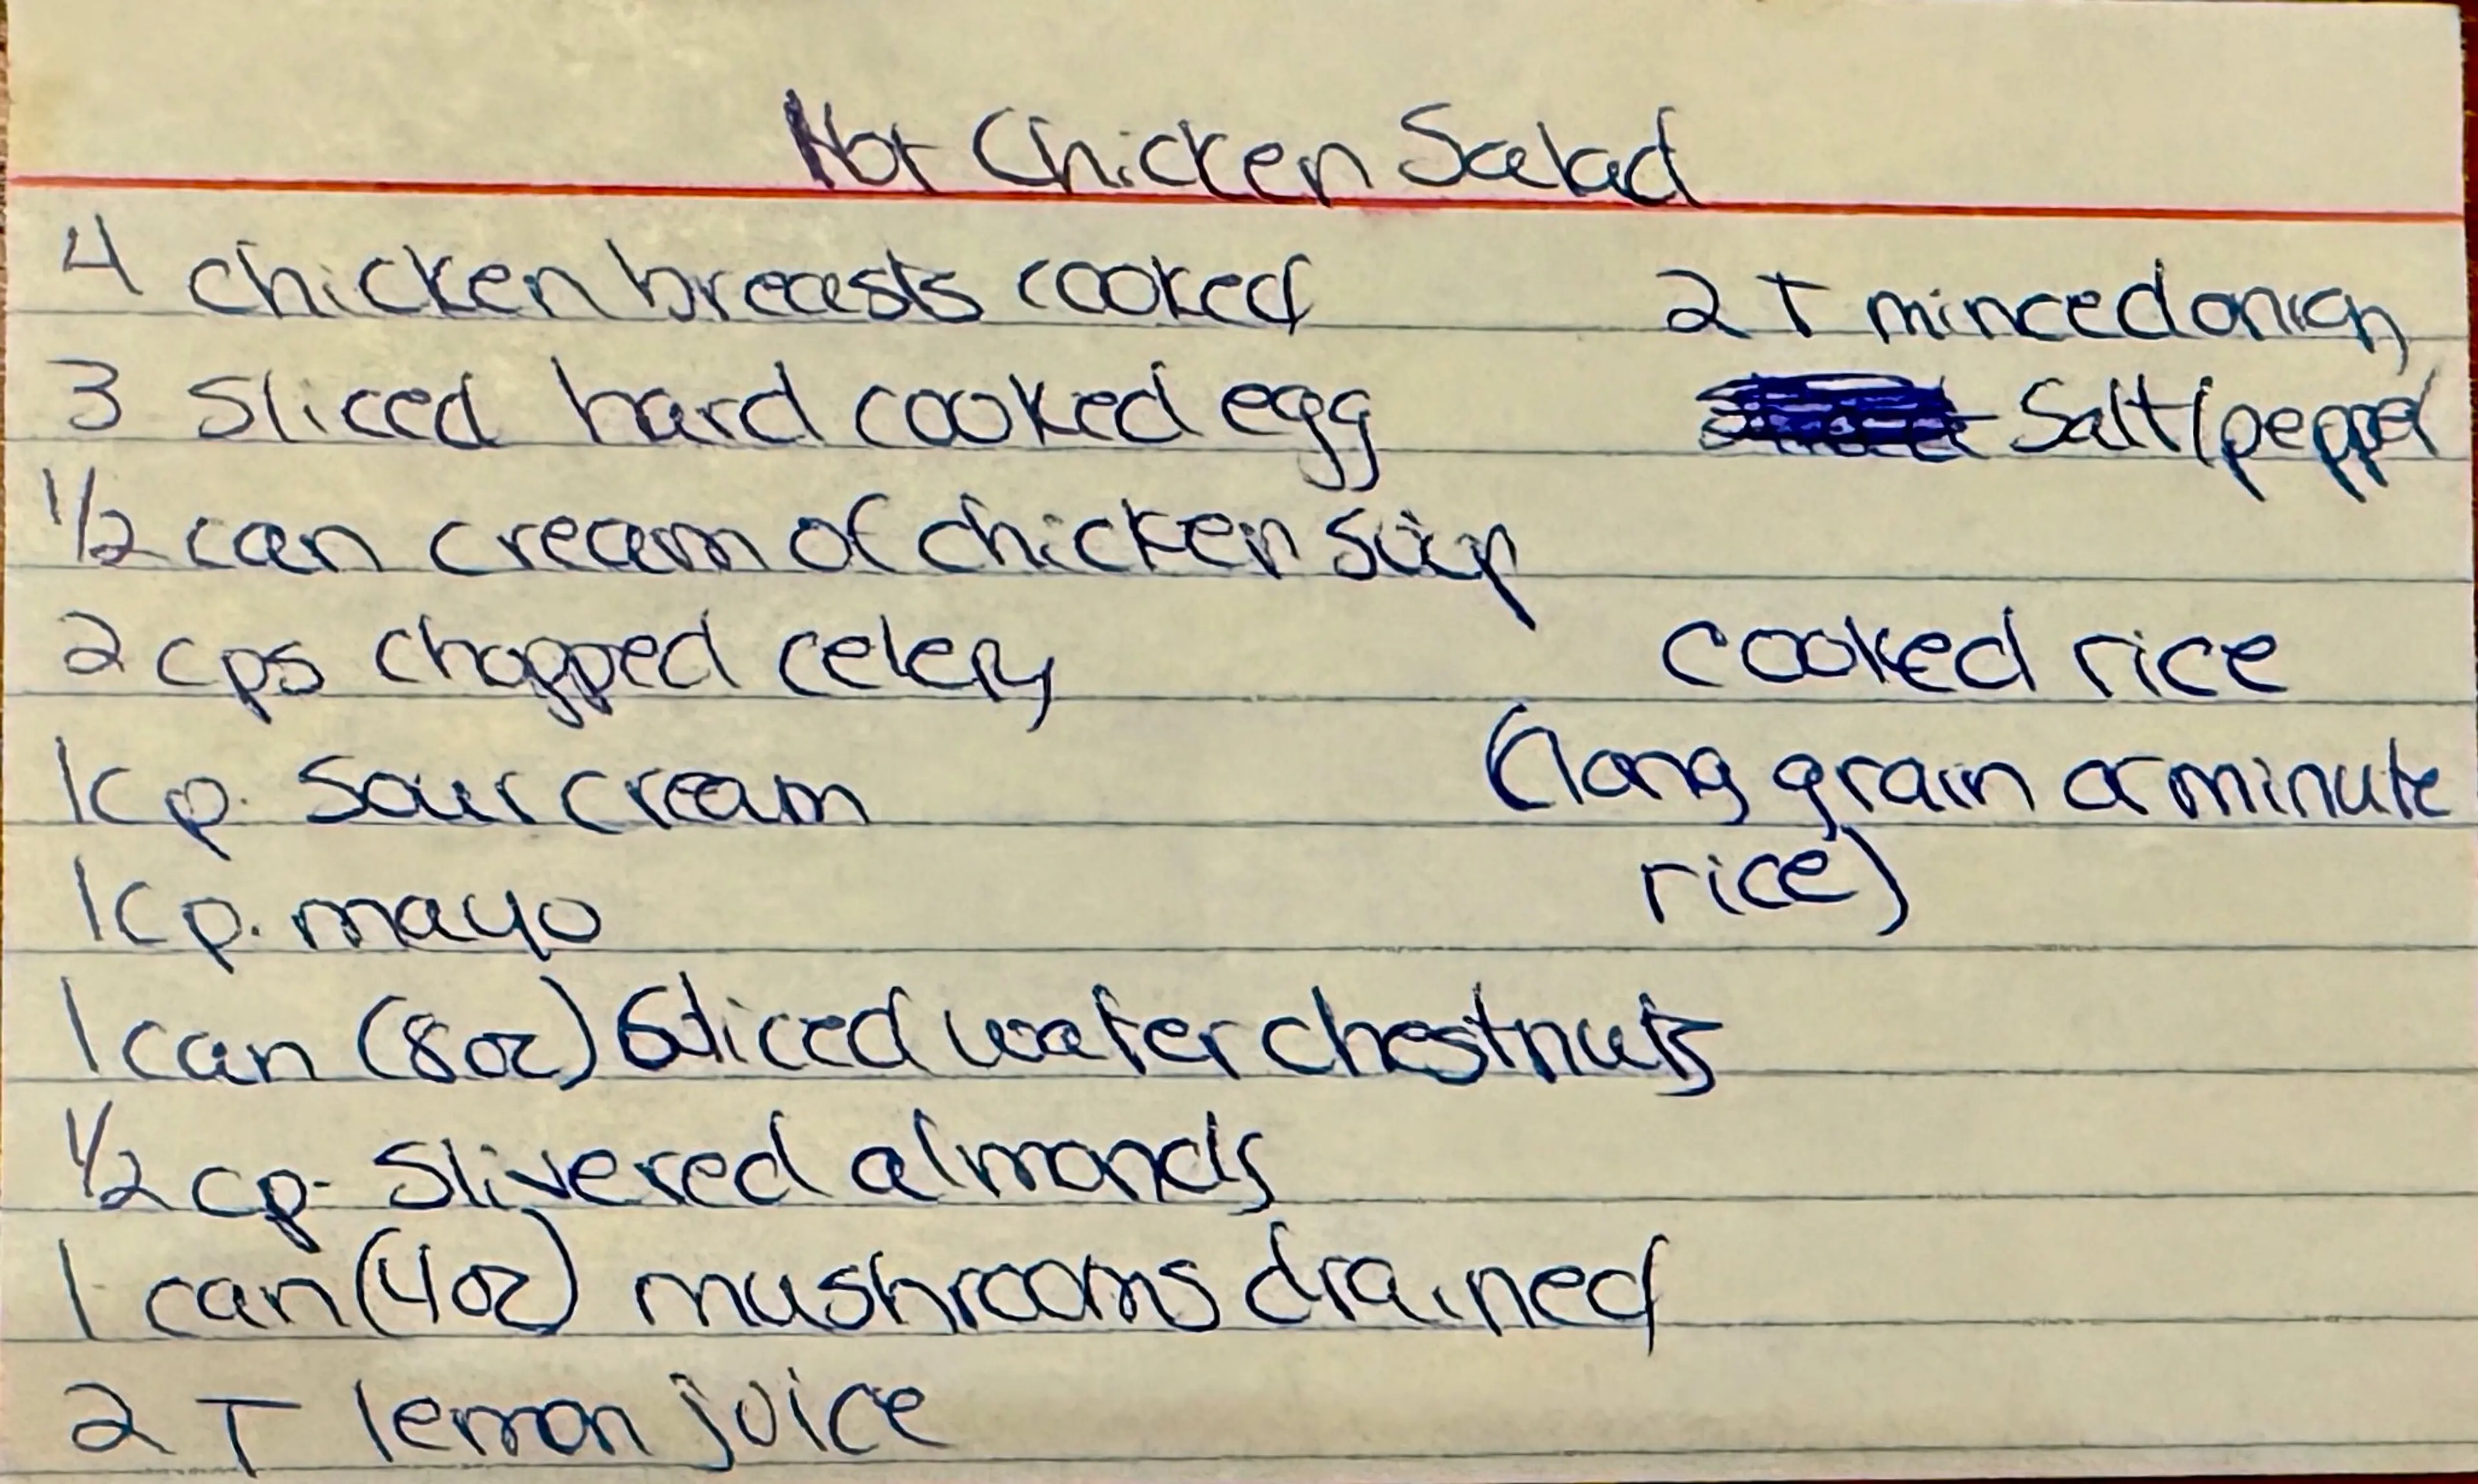 Hot Chicken Salad
4 chicken breasts cooked
3 sliced hard cooked egg
1/2 can cream of chicken soup
2 cps chopped celery
1 cp. sour cream
1 cp. mayo
1 can (8oz) sliced water chestnuts
1/2 cp. slivered almonds
1 can (4oz) mushrooms drained
2 T lemon juice
2 T minced onion
Salt/pepper
cooked rice
(long grain or minute
rice)